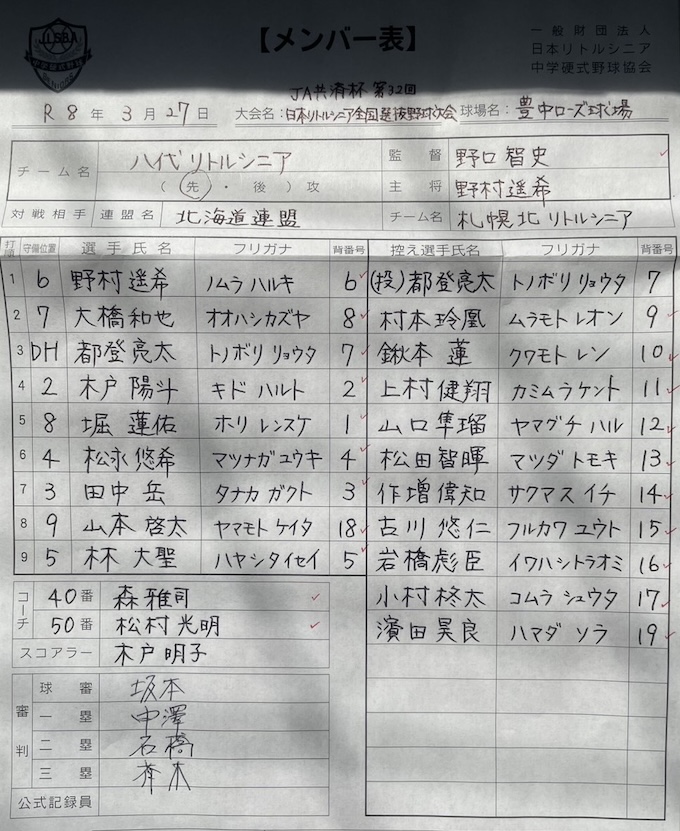 JLSBA
【メンバー表】
一般財団法人
日本リトルシニア
中学硬式野球協会
JA共済杯 第32回
R8年 3月27日 大会名：日本リトルシニア全国選抜野球大会 球場名：豊中ローズ球場
チーム名 八代リトルシニア 監督 野口智史
（先・後）攻 主将 野村遥希
対戦相手 連盟名 北海道連盟 チーム名 札幌北リトルシニア
打順 守備位置 選手氏名 フリガナ 背番号 控え選手氏名 フリガナ 背番号
1 6 野村遥希 ノムラ ハルキ 6 (投)都登亮太 トノボリ リョウタ 7
2 7 大橋和也 オオハシカズヤ 8 村本玲凰 ムラモトレオン 9
3 DH 都登亮太 トノボリ リョウタ 7 鍬本 蓮 クワモト レン 10
4 2 木戸陽斗 キド ハルト 2 上村健翔 カミムラケント 11
5 8 堀 蓮佑 ホリ レンスケ 1 山口隼瑠 ヤマグチ ハル 12
6 4 松永悠希 マツナガユウキ 4 松田智暉 マツダ トモキ 13
7 3 田中 岳 タナカ ガクト 3 作増偉知 サクマス イチ 14
8 9 山本啓太 ヤマモト ケイタ 18 古川悠仁 フルカワ ユウト 15
9 5 林 大聖 ハヤシタイセイ 5 岩橋彪臣 イワハシトラオミ 16
小村柊太 コムラ シュウタ 17
濱田昊良 ハマダ ソラ 19
コーチ 40番 森雅司
50番 松村光明
スコアラー 木戸明子
審判 球審 坂本
一塁 中澤
二塁 石橋
三塁
公式記録員